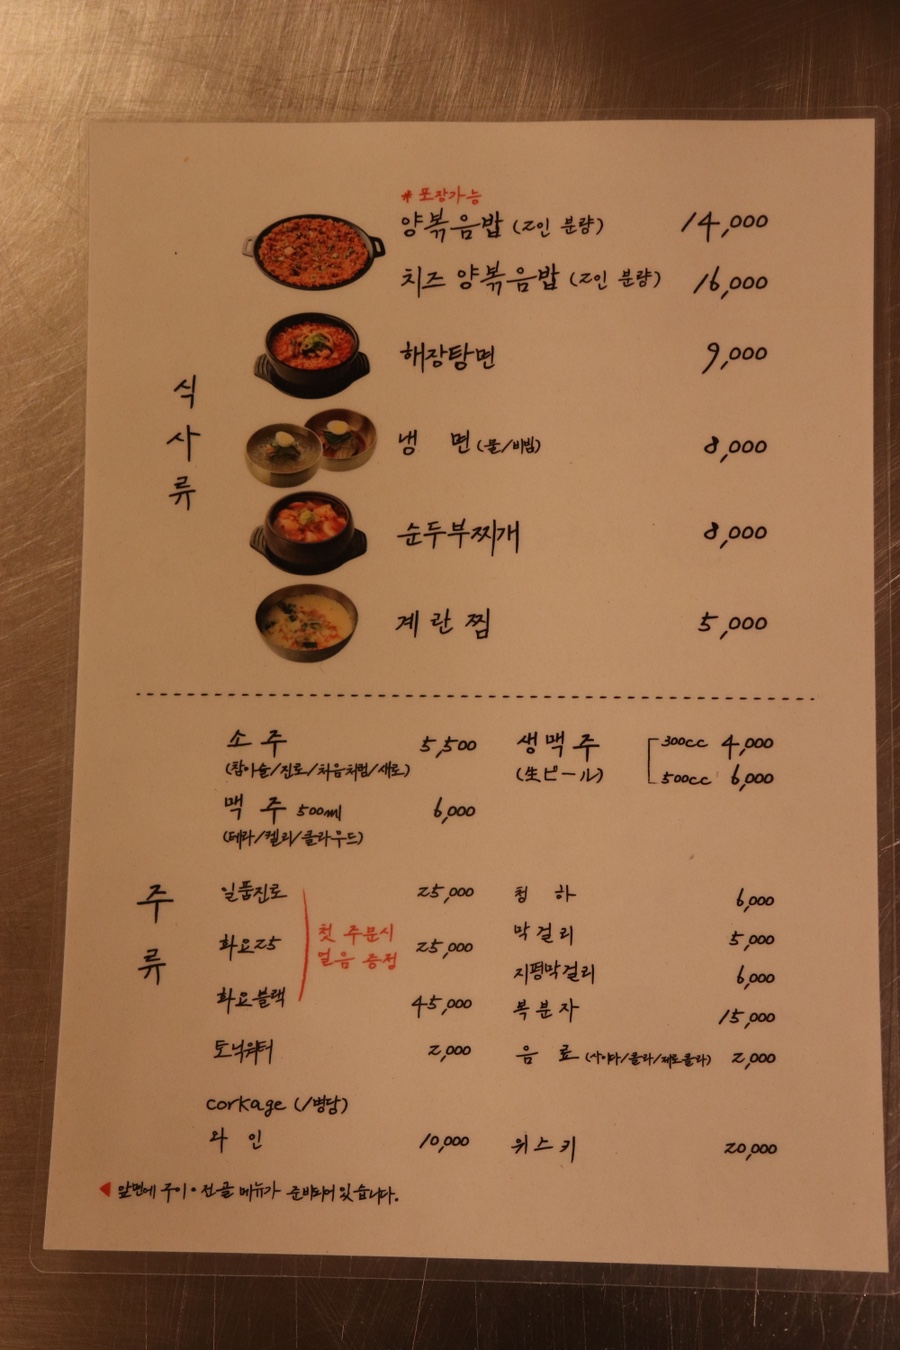 * 포장가능
양볶음밥 (2인 분량) 14,000
치즈 양볶음밥 (2인 분량) 16,000
해장탕면 9,000
식사류
냉 면 (물/비빔) 8,000
순두부찌개 8,000
계란찜 5,000
소 주 5,500
(참이슬/진로/처음처럼/새로)
맥 주 500ml 6,000
(테라/켈리/클라우드)
생맥주 300cc 4,000
(生ビール) 500cc 6,000
주류
일품진로 25,000
화요25 25,000
화요블랙 45,000
첫 주문시
얼음 증정
토닉워터 2,000
청 하 6,000
막걸리 5,000
지평막걸리 6,000
복분자 15,000
음 료 (사이다/콜라/제로콜라) 2,000
corkage (1병당)
와 인 10,000
위스키 20,000
◀ 앞면에 구이·전골 메뉴가 준비되어 있습니다.